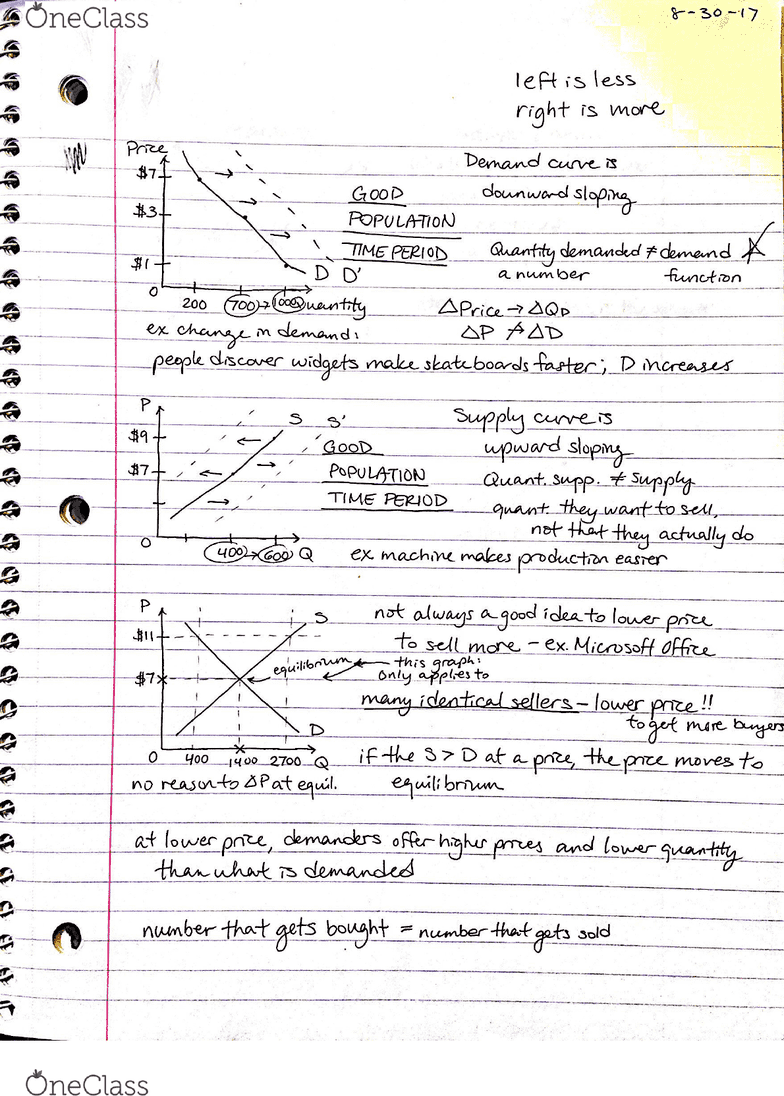 OneClass
8-30-17
left is less
right is more
Price
Demand curve is
$7
GOOD
downward sloping
$3
POPULATION
TIME PERIOD
Quantity demanded ≠ demand
$1
D D'
a number
function
0
200 700 → 1000 Quantity
ΔPrice → ΔQD
ex change in demand:
ΔP ↛ ΔD
people discover widgets make skateboards faster; D increases
P
S S'
Supply curve is
$9
GOOD
upward sloping
$7
POPULATION
Quant. supp. ≠ supply
TIME PERIOD
quant. they want to sell,
not that they actually do
0
400 → 600 Q
ex machine makes production easier
P
S
not always a good idea to lower price
$11
to sell more - ex. Microsoft Office
equilibrium
this graph:
only applies to
$7
many identical sellers - lower price!!
to get more buyers
D
0 400 1400 2700 Q
if the S > D at a price, the price moves to
equilibrium
no reason to ΔP at equil.
at lower price, demanders offer higher prices and lower quantity
than what is demanded
number that gets bought = number that gets sold
OneClass